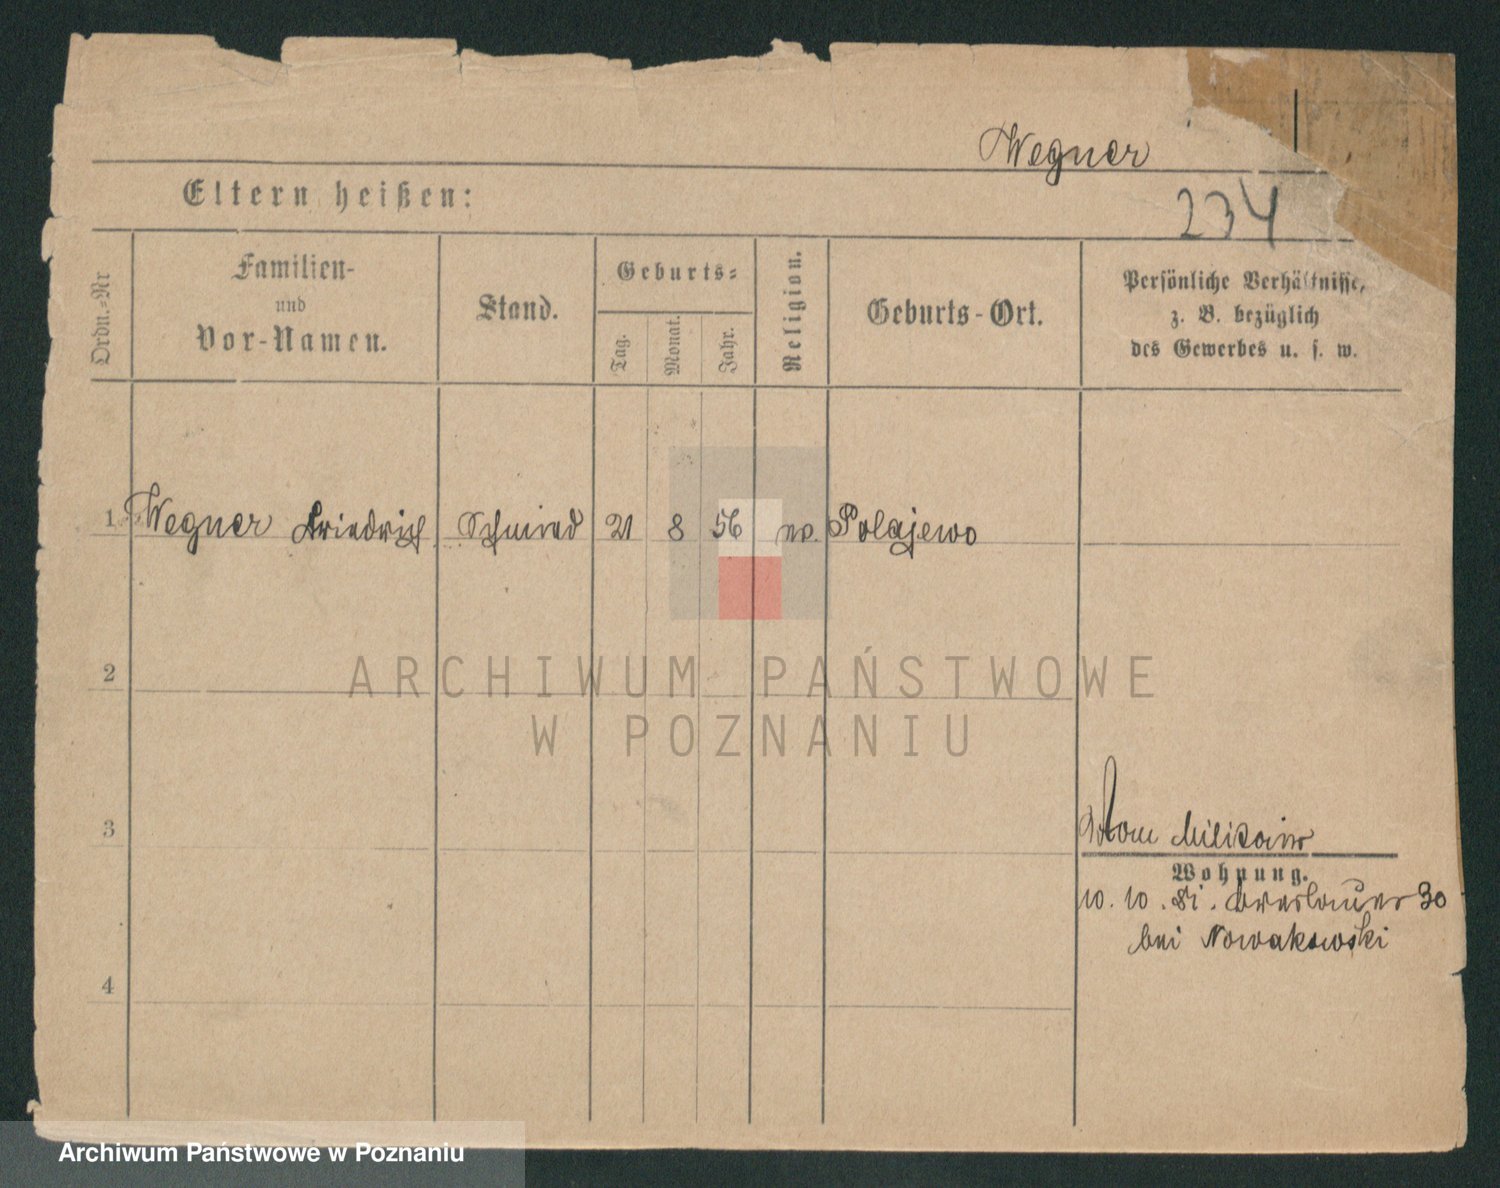 Wegner
Eltern heißen:
234
Ordn.-Nr
Familien-
und
Vor-Namen.
Stand.
Geburts-
Tag.
Monat.
Jahr.
Religion.
Geburts-Ort.
Persönliche Verhältnisse,
z. B. bezüglich
des Gewerbes u. s. w.
1 Wegner Friedrich Schmied 21 8 56 ev. Polajewo
2
3
4
Vom Militair
Wohnung.
10. 10. 81. Breslauer 30
bei Nowakowski
ARCHIWUM PAŃSTWOWE
W POZNANIU
Archiwum Państwowe w Poznaniu